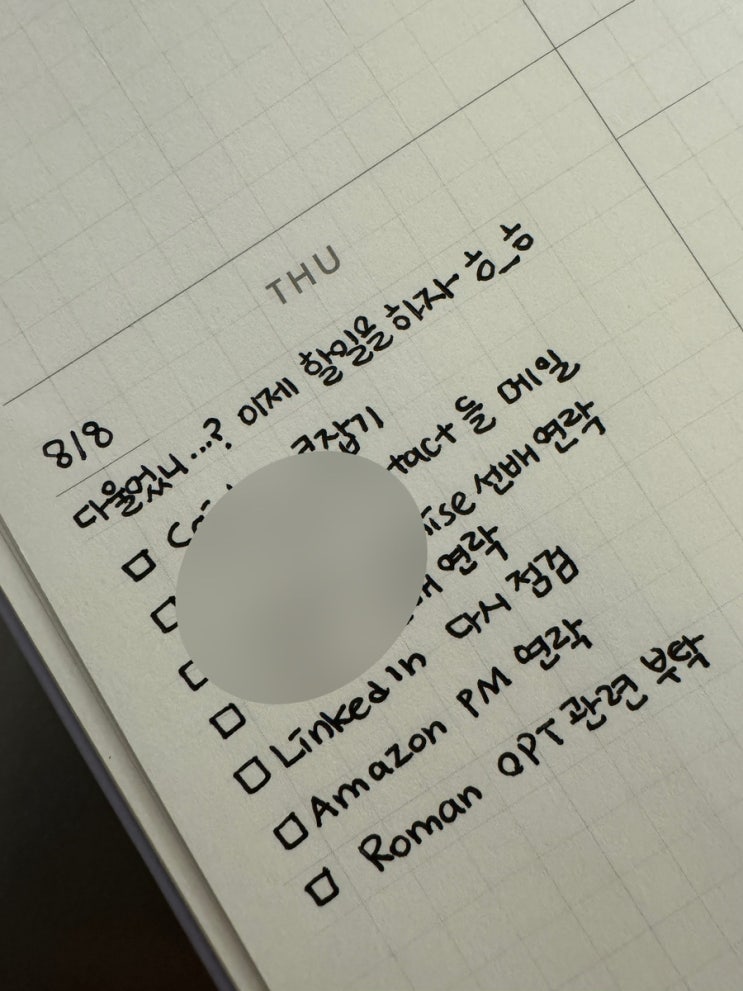 THU
8/8
다울었니...? 이제 할일을 하자 ㅎ_ㅎ
잡기
들 메일
선배 연락
연락
□ LinkedIn 다시 점검
□ Amazon PM 연락
□ Roman OPT 관련 부탁